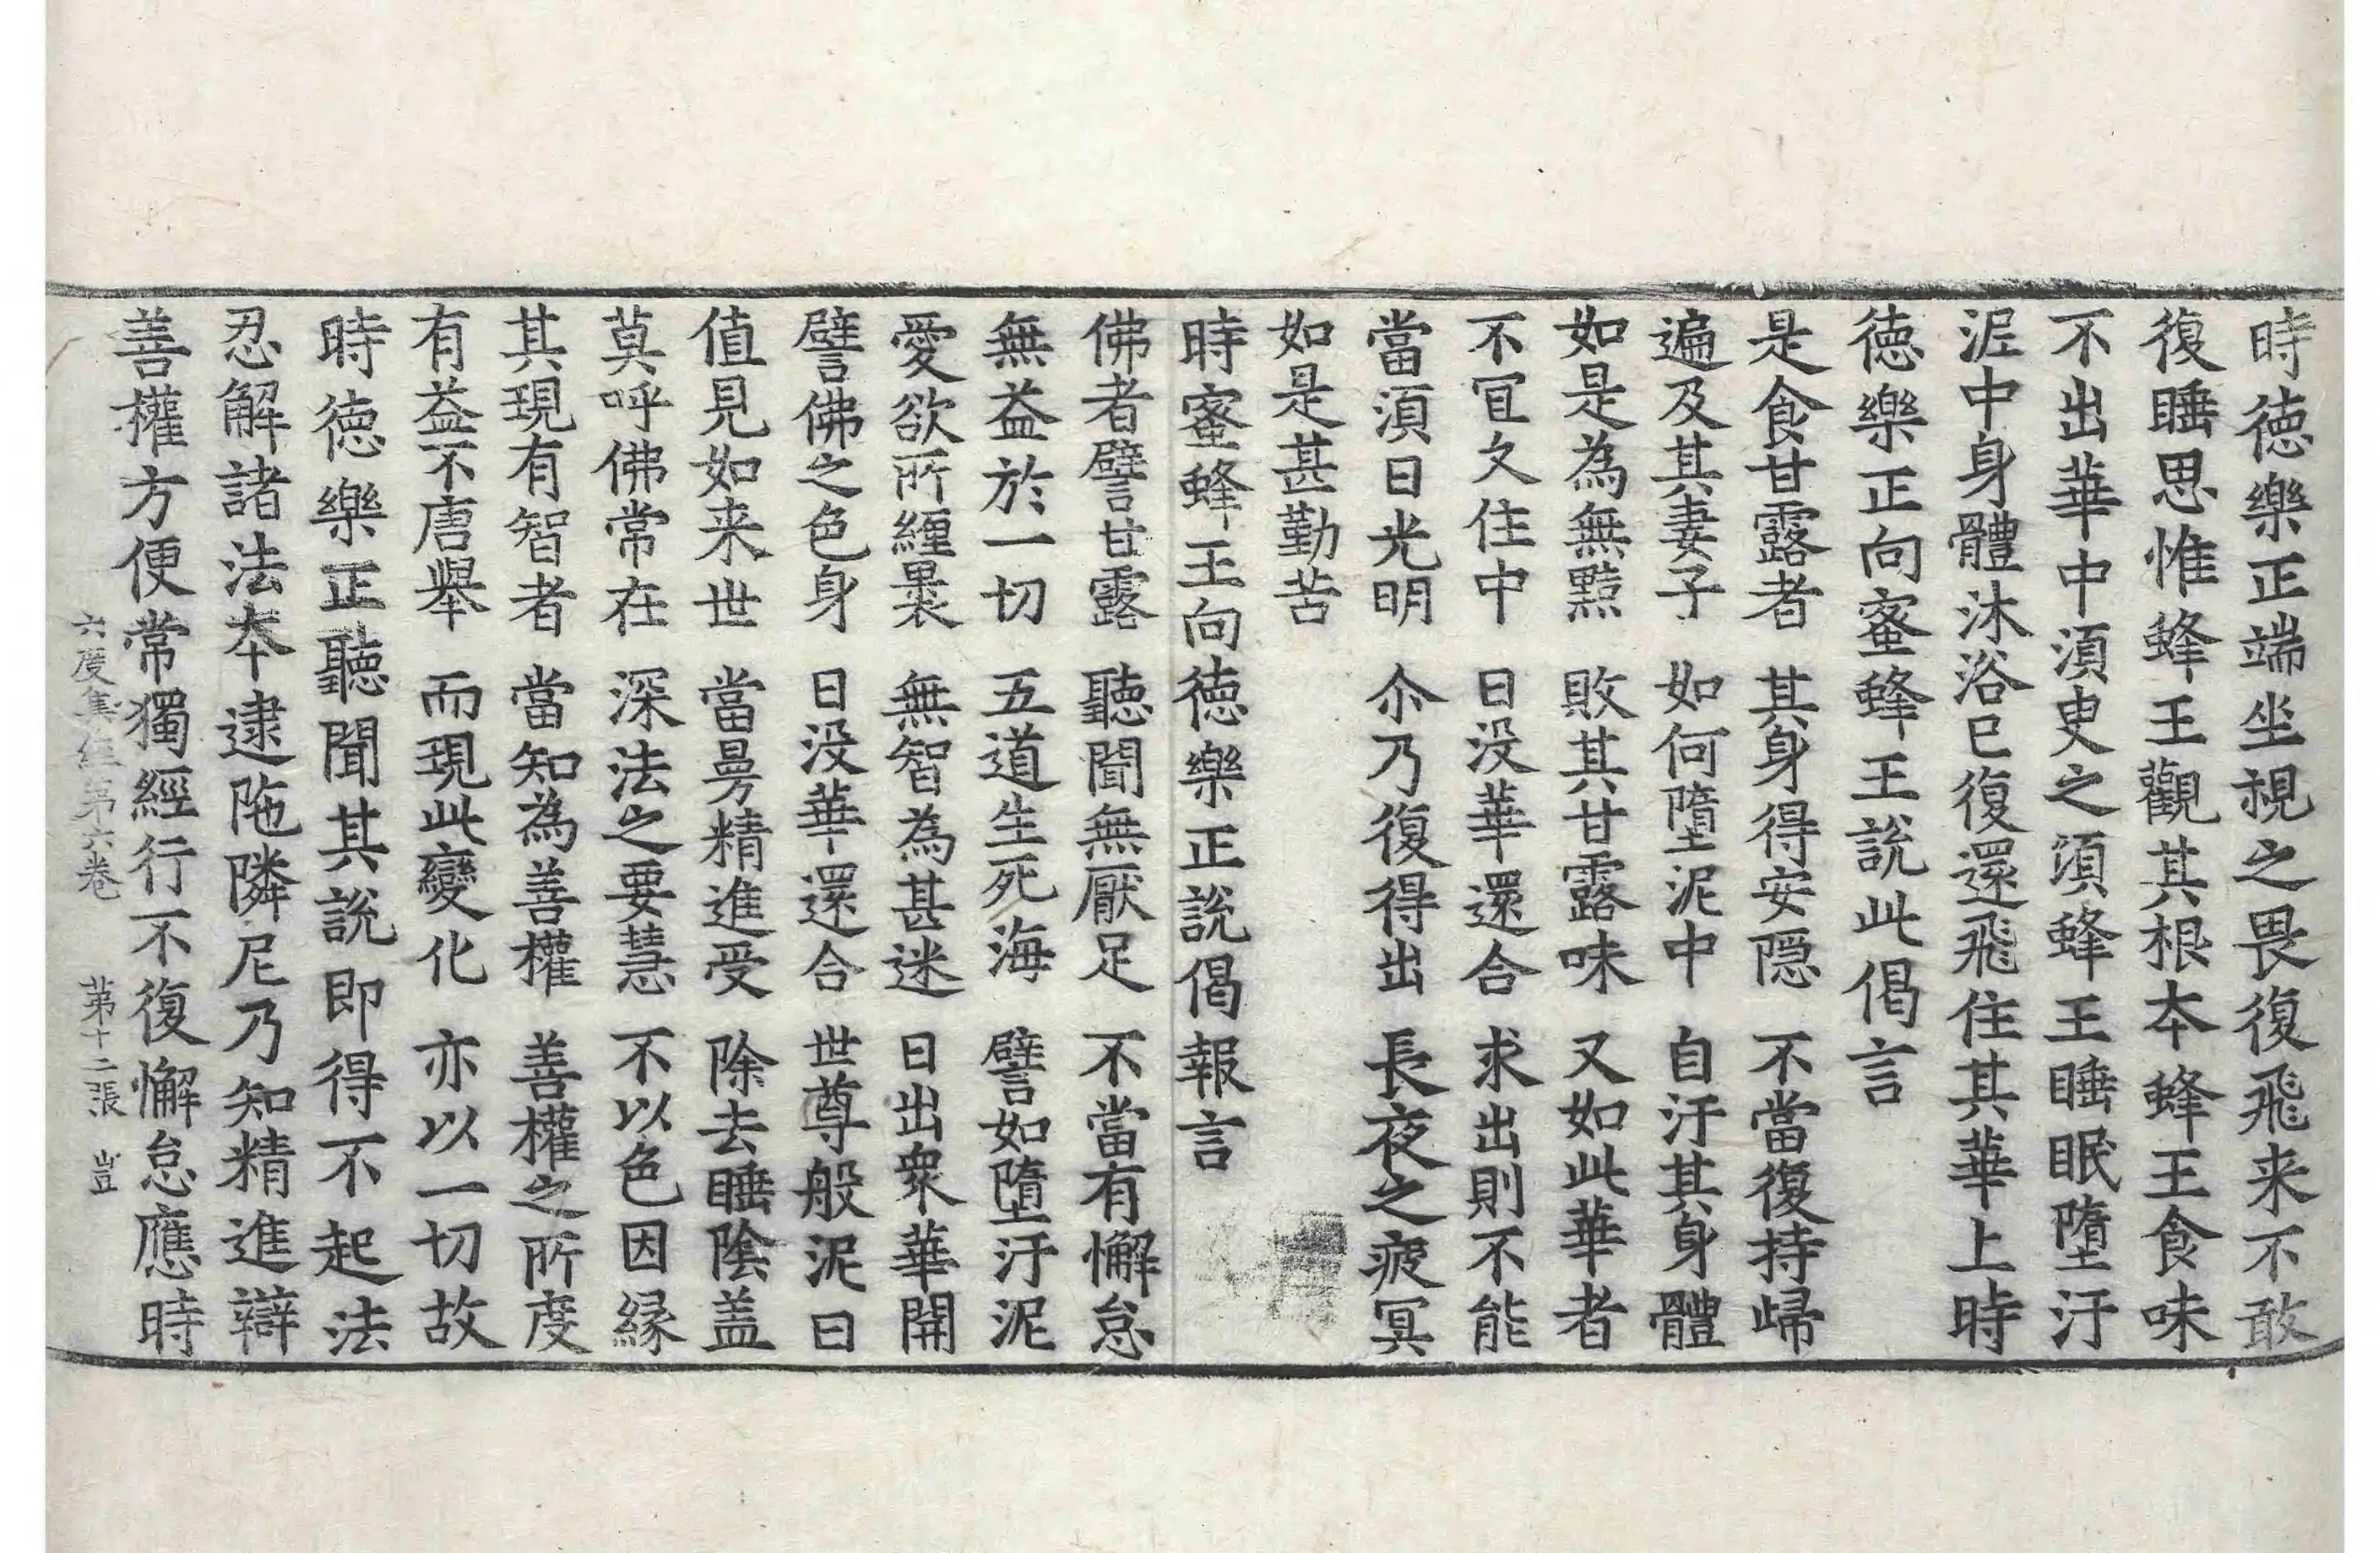 時徳樂正端坐視之畏復飛来不敢
復睡思惟蜂王觀其根夲蜂王食味
不出華中湏史之頃蜂王睡眠墮汙
泥中身體沐浴已復還飛住其華上時
徳樂正向蜜蜂王說此偈言
是食甘露者　其身得安隠　不當復持歸
遍及其妻子　如何墮泥中　自汙其身體
如是為無黠　敗其甘露味　又如此華者
不宜久住中　日没華還合　求出則不能
當湏日光明　尒乃復得出　長夜之疲冥
如是甚勤苦
時蜜蜂王向徳樂正說偈報言
佛者譬甘露　聽聞無厭足　不當有懈怠
無益於一切　五道生死海　譬如墮汙泥
愛欲所纏裹　無智為甚迷　日出衆華開
譬佛之色身　日没華還合　世尊般泥曰
值見如来世　當曼精進受　除去睡陰盖
莫呼佛常在　深法之要慧　不以色因緣
其現有智者　當知為善權　善權之所度
有益不唐舉　而現此變化　亦以一切故
時徳樂正聽聞其說即得不起法
忍解諸法夲逮陁隣尼乃知精進辯
善權方便常獨經行不復懈怠應時
六度集經第六卷　第十二張　豈